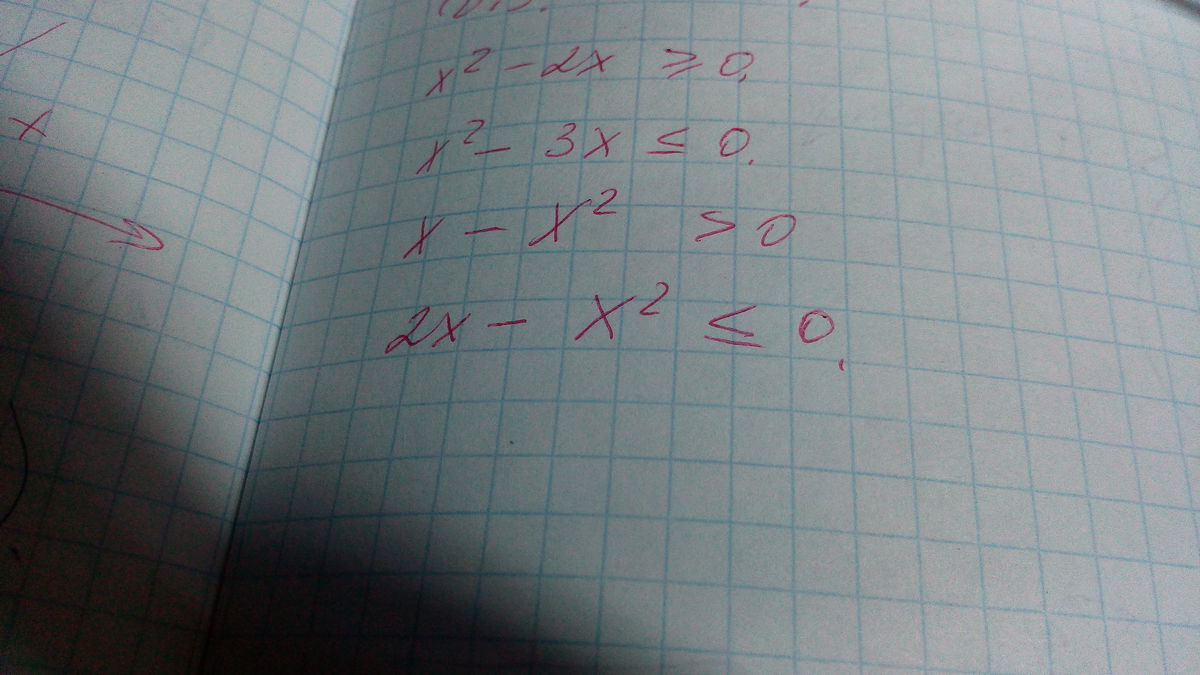 x² - 2x ⩾ 0.
x² - 3x ≤ 0.
x
x - x² > 0
2x - x² ≤ 0.